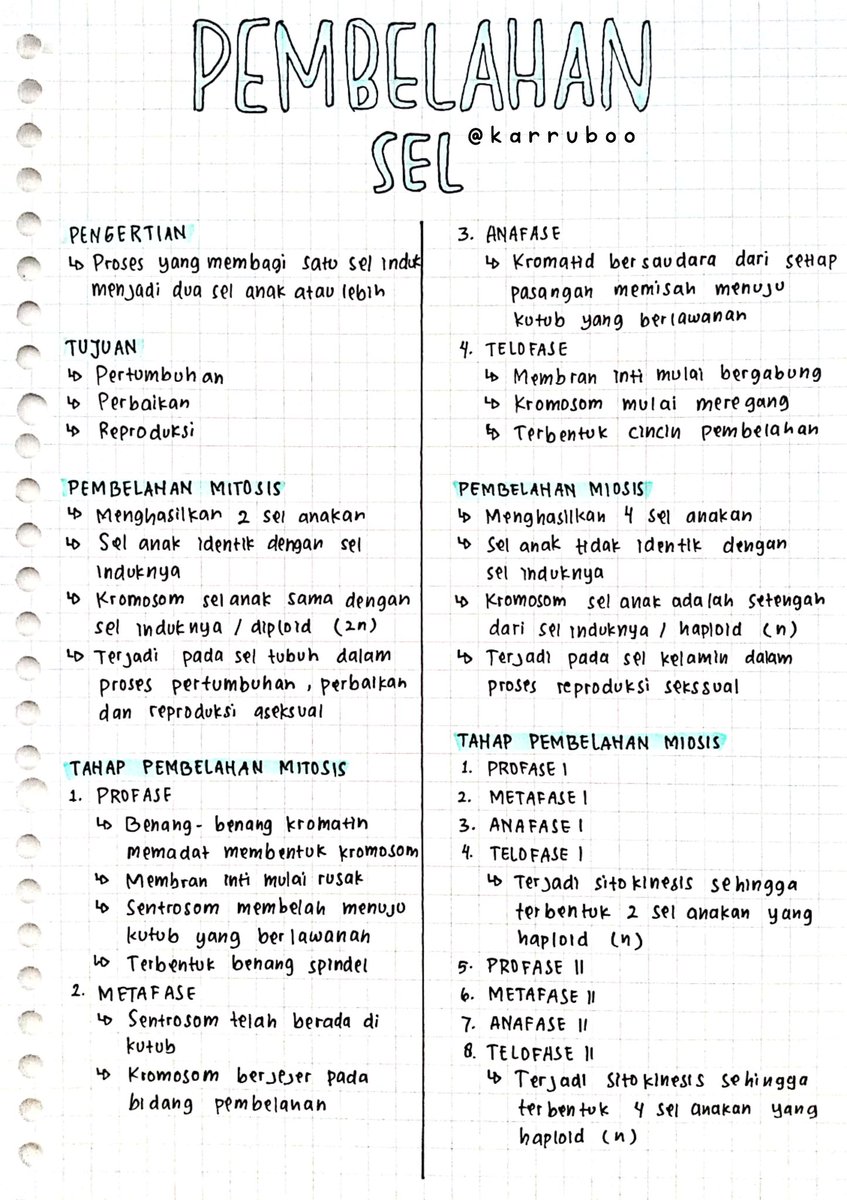 PEMBELAHAN
SEL
@karruboo
PENGERTIAN
↳ Proses yang membagi satu sel induk
menjadi dua sel anak atau lebih
TUJUAN
↳ Pertumbuhan
↳ Perbaikan
↳ Reproduksi
PEMBELAHAN MITOSIS
↳ Menghasilkan 2 sel anakan
↳ Sel anak identik dengan sel
induknya
↳ Kromosom sel anak sama dengan
sel induknya / diploid (2n)
↳ Terjadi pada sel tubuh dalam
proses pertumbuhan, perbaikan
dan reproduksi aseksual
TAHAP PEMBELAHAN MITOSIS
1. PROFASE
↳ Benang-benang kromatin
memadat membentuk kromosom
↳ Membran inti mulai rusak
↳ Sentrosom membelah menuju
kutub yang berlawanan
↳ Terbentuk benang spindel
2. METAFASE
↳ Sentrosom telah berada di
kutub
↳ Kromosom berjejer pada
bidang pembelahan
3. ANAFASE
↳ Kromatid bersaudara dari setiap
pasangan memisah menuju
kutub yang berlawanan
4. TELOFASE
↳ Membran inti mulai bergabung
↳ Kromosom mulai meregang
↳ Terbentuk cincin pembelahan
PEMBELAHAN MIOSIS
↳ Menghasilkan 4 sel anakan
↳ Sel anak tidak identik dengan
sel induknya
↳ Kromosom sel anak adalah setengah
dari sel induknya / haploid (n)
↳ Terjadi pada sel kelamin dalam
proses reproduksi sekssual
TAHAP PEMBELAHAN MIOSIS
1. PROFASE I
2. METAFASE I
3. ANAFASE I
4. TELOFASE I
↳ Terjadi sitokinesis sehingga
terbentuk 2 sel anakan yang
haploid (n)
5. PROFASE II
6. METAFASE II
7. ANAFASE II
8. TELOFASE II
↳ Terjadi sitokinesis sehingga
terbentuk 4 sel anakan yang
haploid (n)